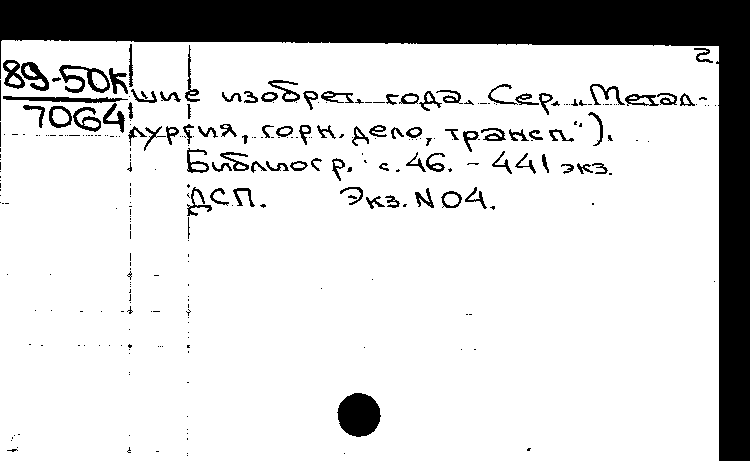 2.
89-50К
7064
шие изобрет. года. Сер. „Метал-
лургия, горн. дело, трансп.“).
Библиогр. с. 46. - 441 экз.
ДСП. Экз. N 04.